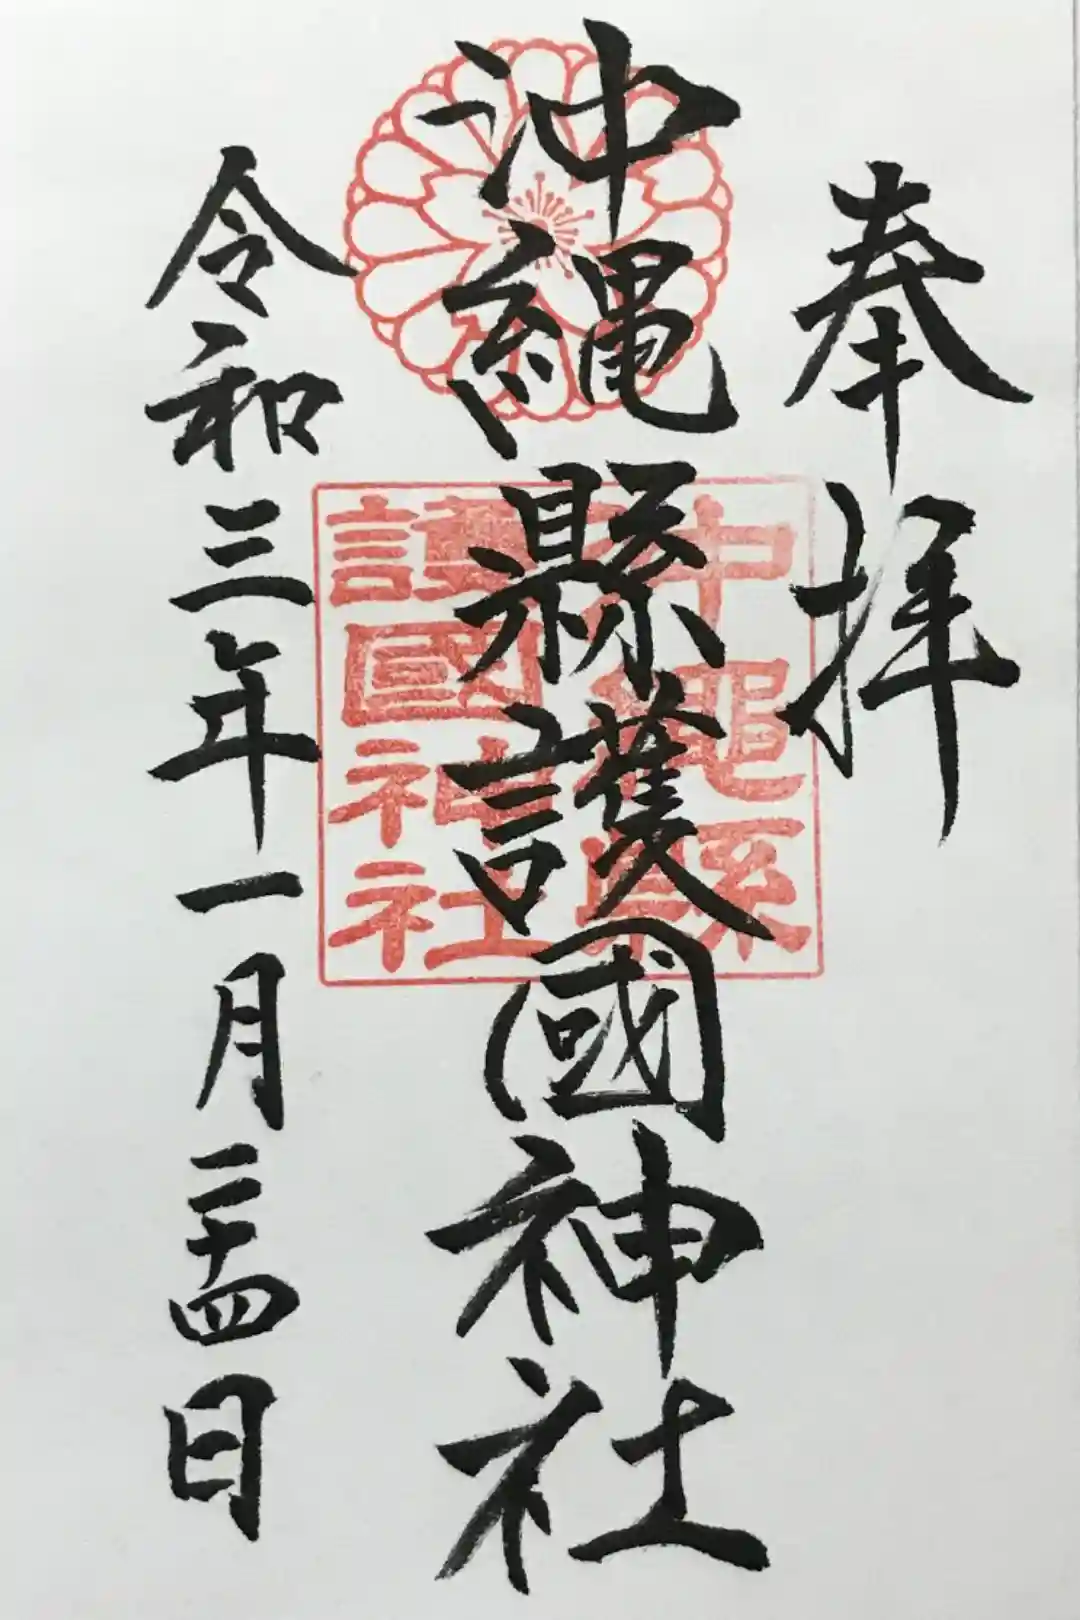 奉拝
沖縄縣護國神社
沖縄縣
護國神社
令和三年一月二十四日